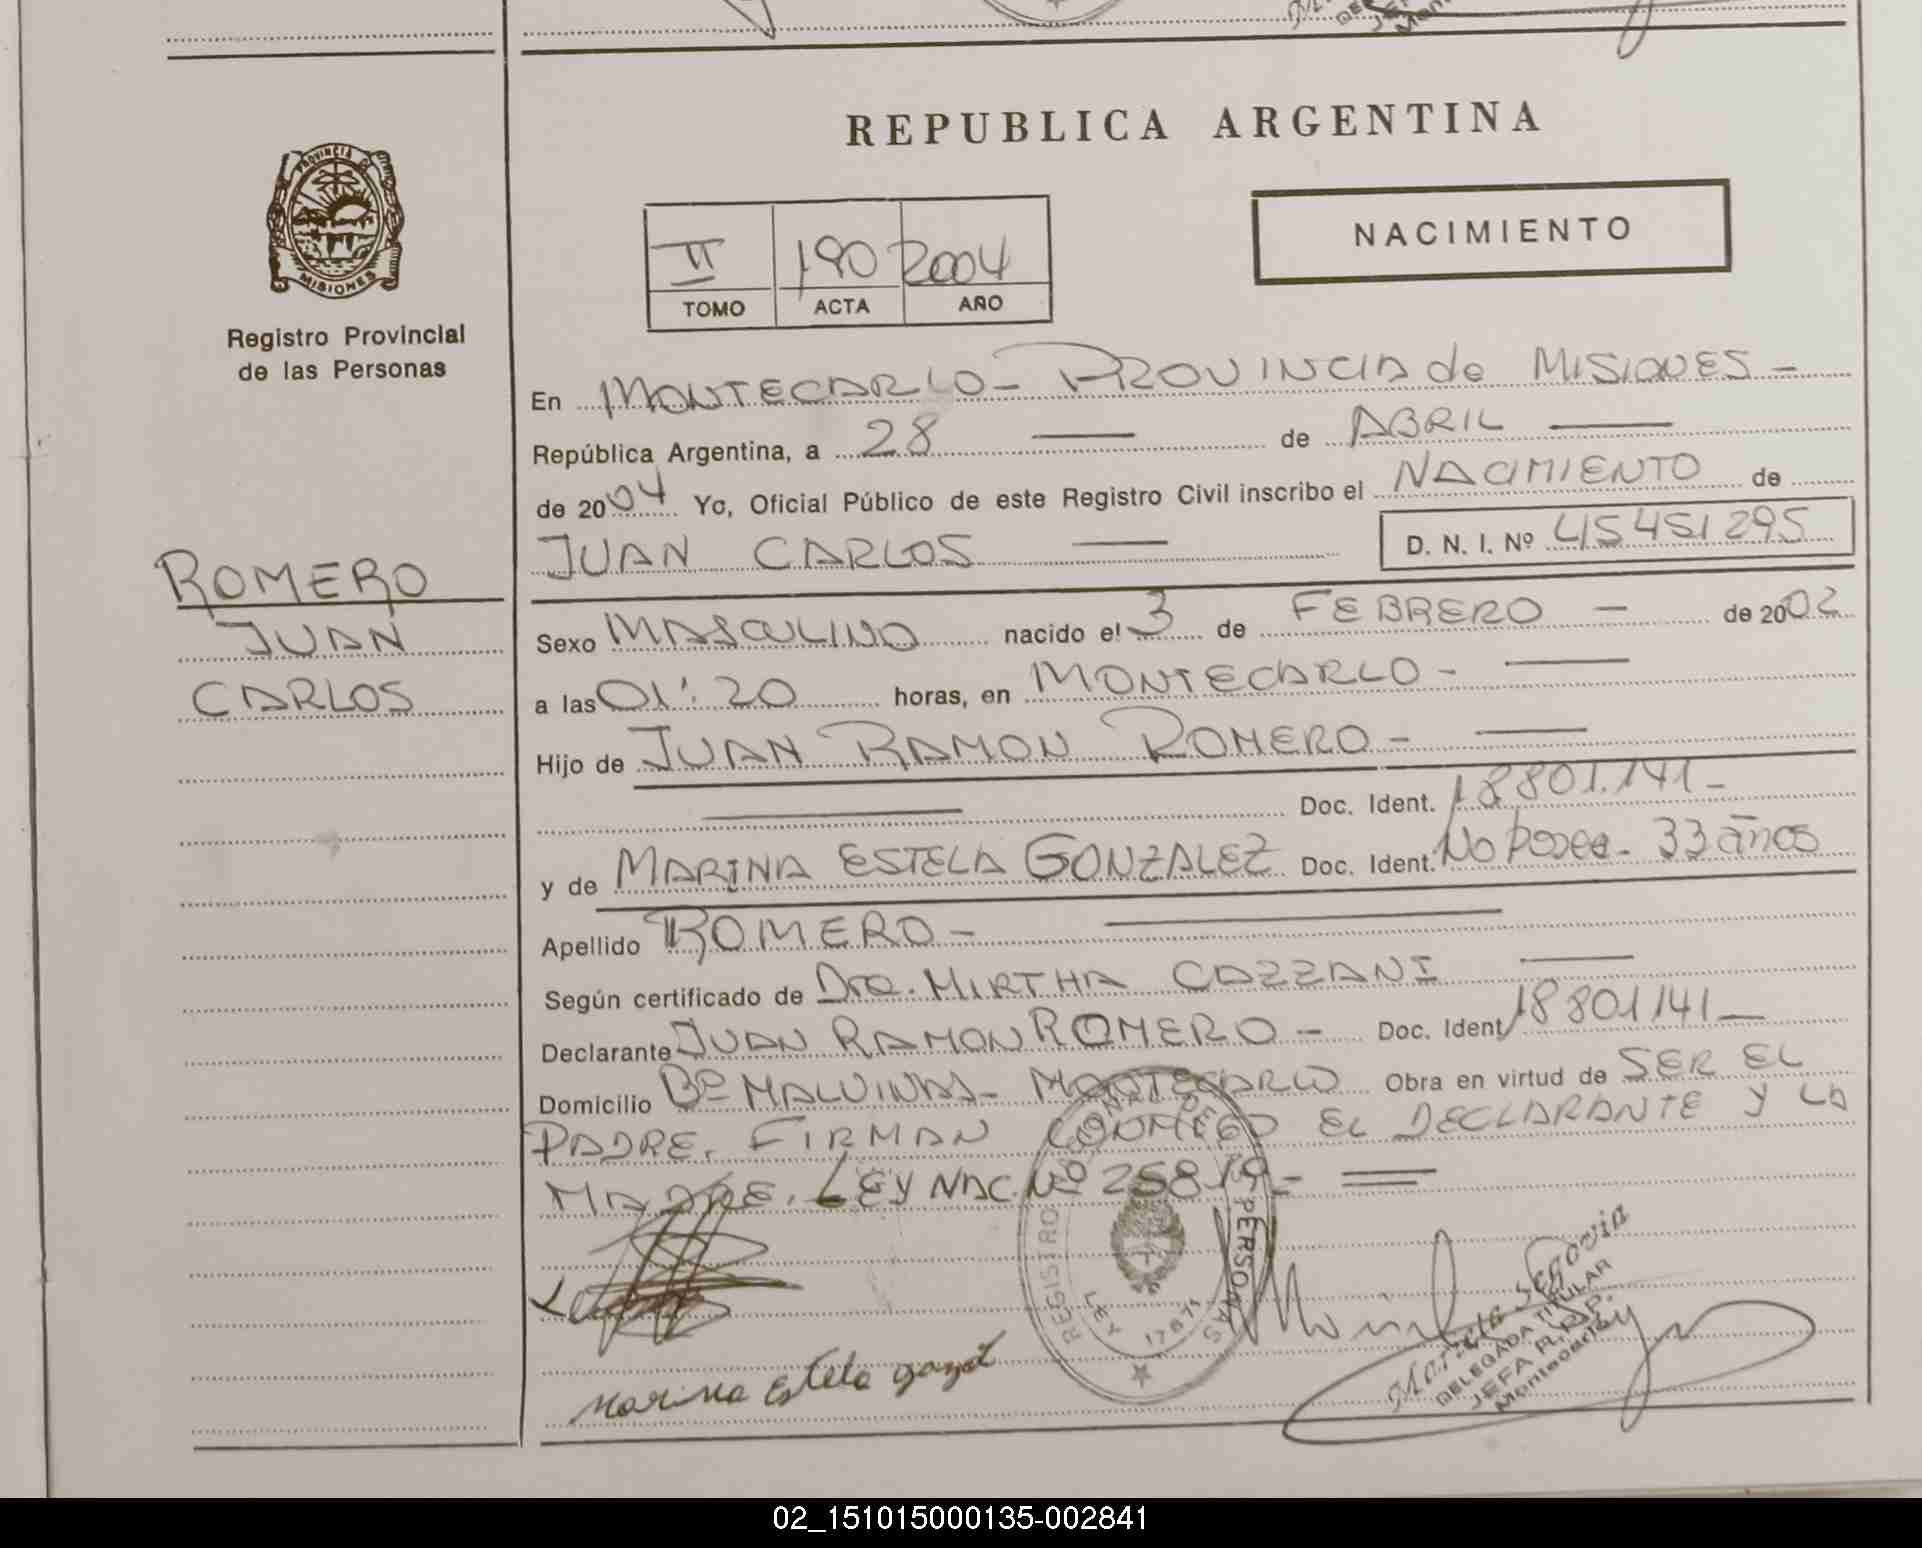 REPUBLICA ARGENTINA
PROVINCIA DE
MISIONES
Registro Provincial
de las Personas
NACIMIENTO
II 190 2004
TOMO ACTA AÑO
En MONTECARLO - PROVINCIA de MISIONES -
República Argentina, a 28 de ABRIL
de 2004 Yo, Oficial Público de este Registro Civil inscribo el NACIMIENTO de
JUAN CARLOS D. N. I. Nº 45451295
ROMERO
JUAN
CARLOS
Sexo MASCULINO nacido el 3 de FEBRERO - de 2002
a las 01:20 horas, en MONTECARLO -
Hijo de JUAN RAMON ROMERO -
Doc. Ident. 18801.141 -
y de MARINA ESTELA GONZALEZ Doc. Ident. No posee - 33 años
Apellido ROMERO -
Según certificado de Dra. MIRTHA CAZZANI
Declarante JUAN RAMON ROMERO - Doc. Ident. 18801141 -
Domicilio Bº MALVINAS - MONTECARLO Obra en virtud de SER EL
PADRE. FIRMAN CONMIGO EL DECLARANTE Y LA
MADRE. LEY NAC. Nº 25819 - =
REGISTRO PERSONAS
LEY 17671
Marina Estela
Segovia
DELEGADA TITULAR
JEFA R.P.P.
Montecarlo
02_151015000135-002841